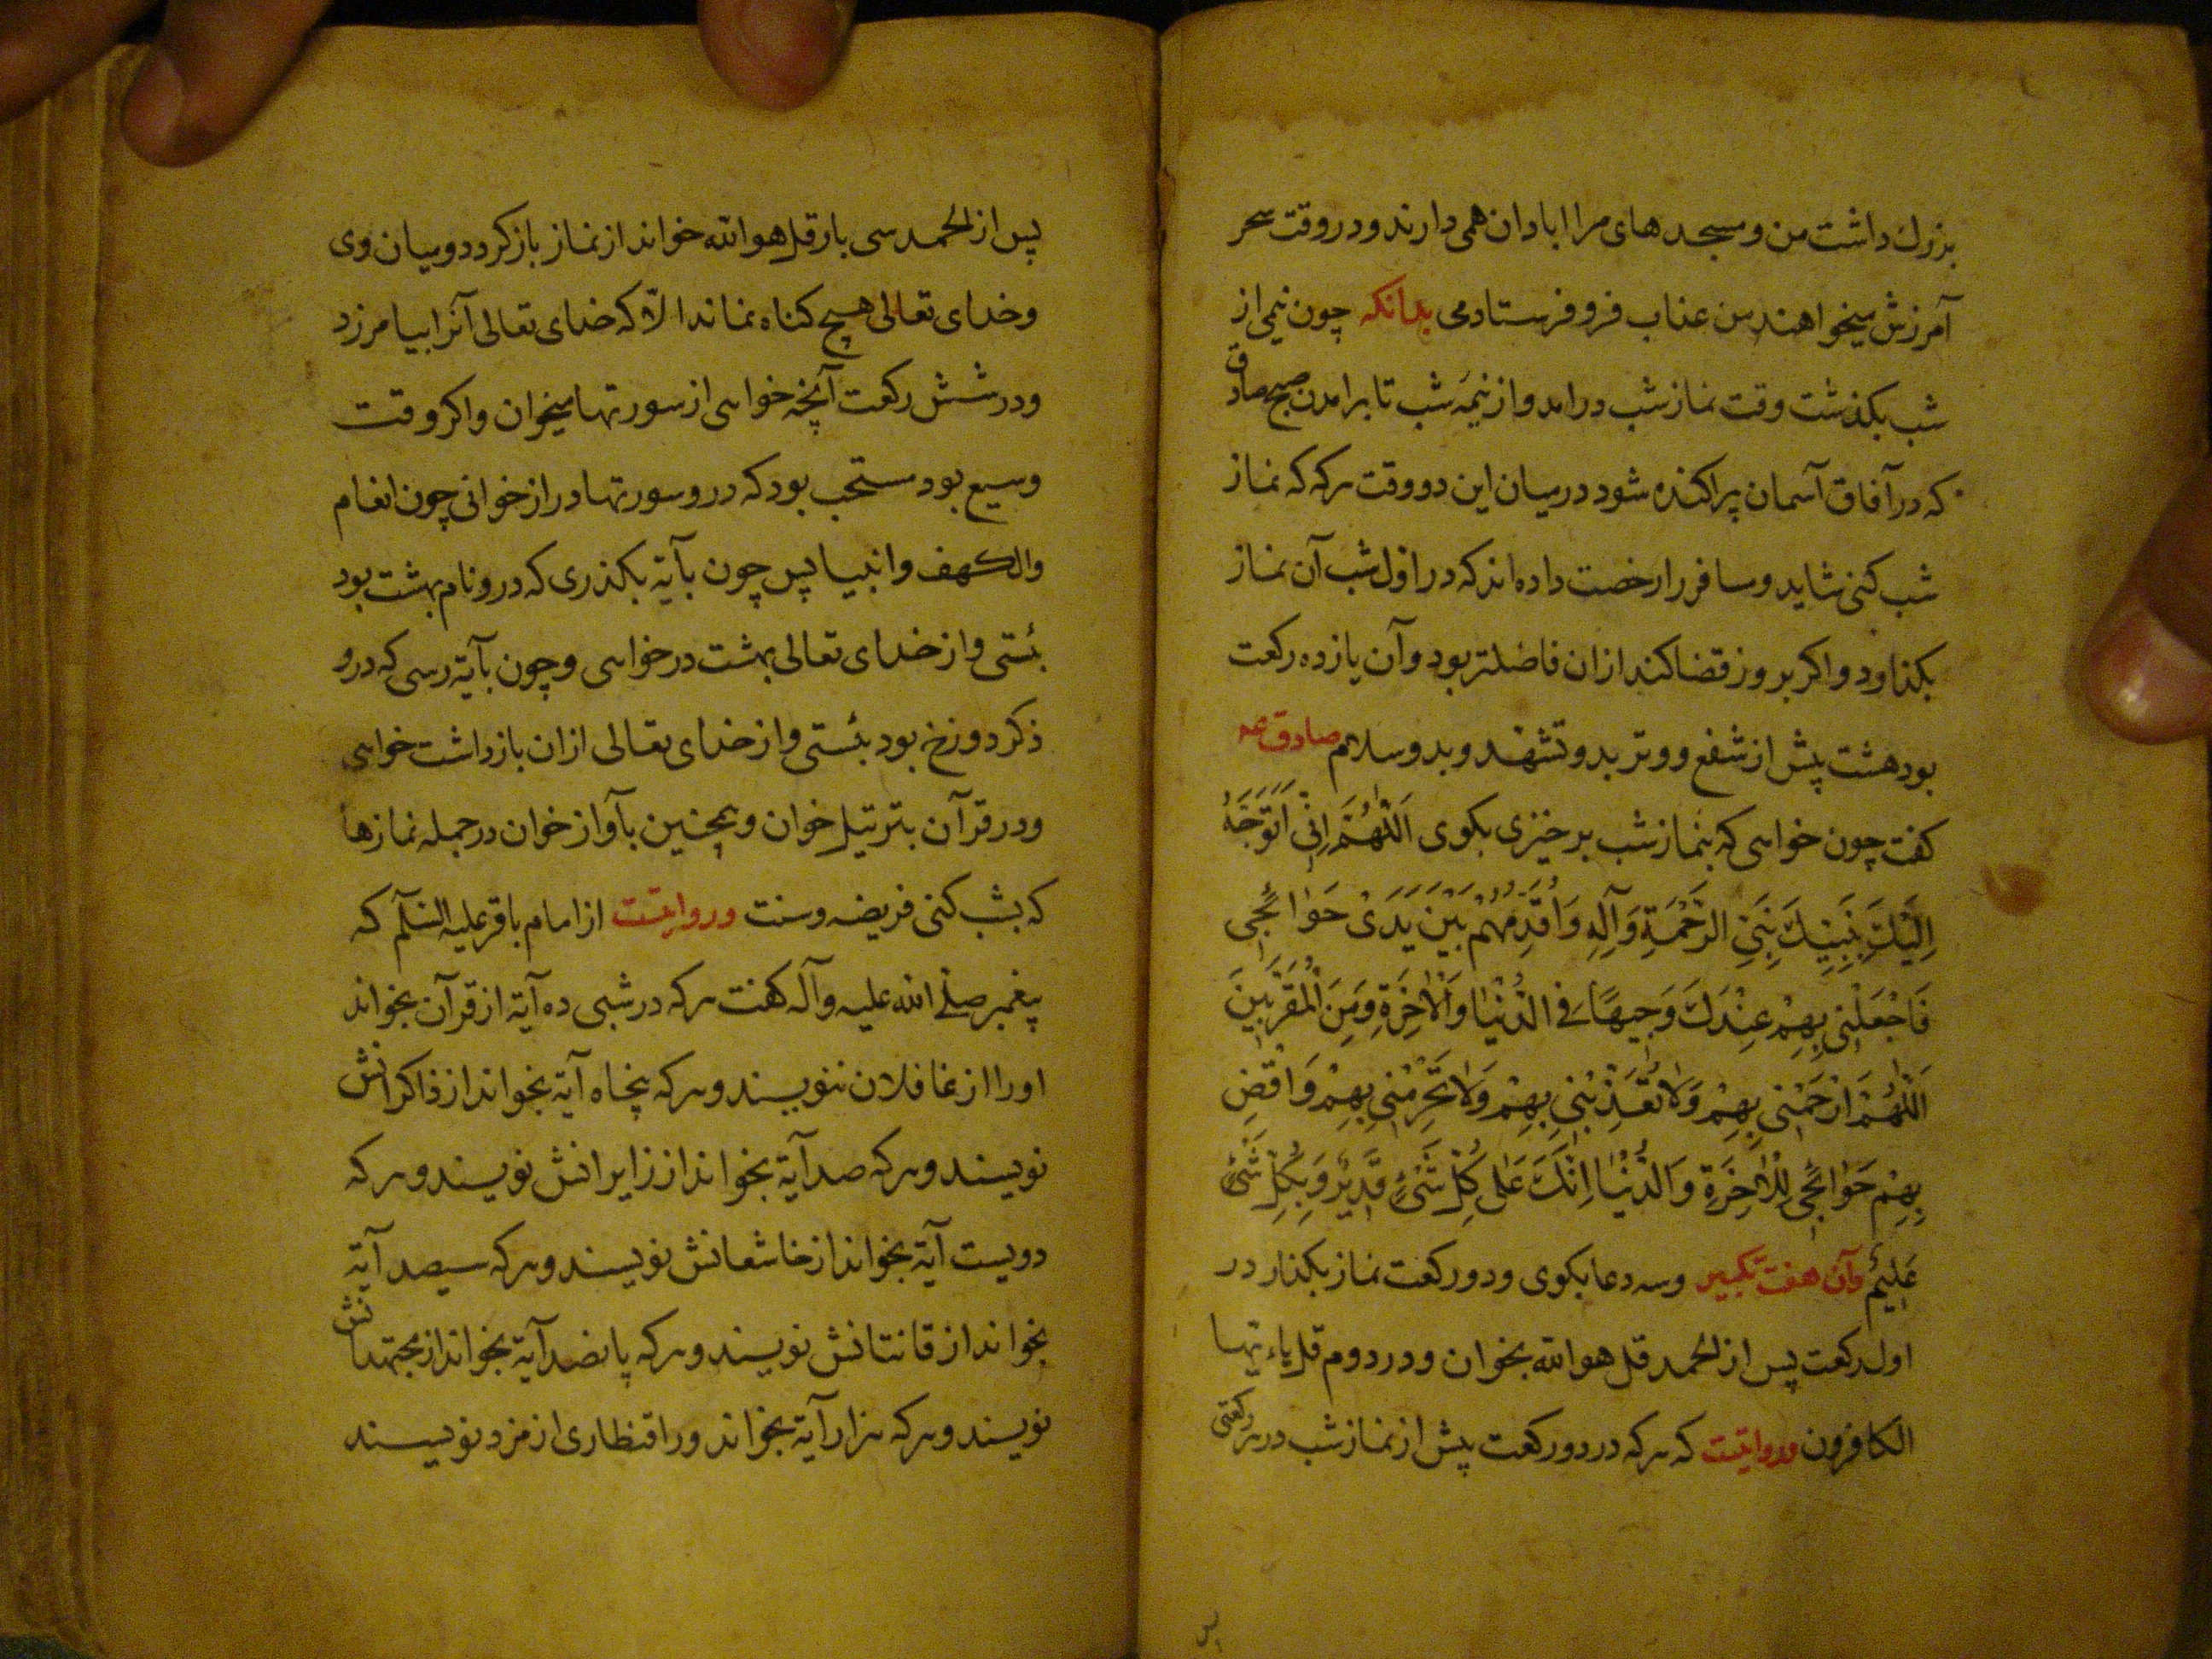 بزرك داشت من و مسجدهای مرا ابادان همی دارند و در وقت سحر
آمرزش میخواهند من عذاب فرو فرستادمی بدانکه چون نیمی از
شب بکذشت وقت نماز شب درامد و از نیمه شب تا برامدن صبح صادق
که در آفاق آسمان پراکنده شود در میان این دو وقت هرکه که نماز
شب کنی شاید و مسافر را رخصت داده اند که در اول شب آن نماز
بکذارد و اکر بروز قضا کند ازان فاضلتر بود و آن یازده رکعت
بود هشت پیش از شفع و وتر بدو تشهد و بدو سلام صادق عه
کفت چون خواهی که بنماز شب برخیزی بکوی اَللّٰهُمَّ اِنِّی اَتَوَجَّهُ
اِلَیْكَ بِنَبِیِّكَ نَبِیِّ الرَّحْمَةِ وَآلِهِ وَاُقَدِّمُهُمْ بَیْنَ یَدَیْ حَوٰائِجِی
فَاجْعَلْنِی بِهِمْ عِنْدَكَ وَجِیهًا فِی الدُّنْیٰا وَالْاٰخِرَةِ وَمِنَ الْمُقَرَّبِینَ
اَللّٰهُمَّ ارْحَمْنِی بِهِمْ وَلاٰ تُعَذِّبْنِی بِهِمْ وَلاٰ تَحْرِمْنِی بِهِمْ وَاقْضِ
بِهِمْ حَوٰائِجِی لِلْاٰخِرَةِ وَالدُّنْیٰا اِنَّكَ عَلٰی کُلِّ شَیْءٍ قَدِیرٌ وَبِکُلِّ شَیْءٍ
عَلِیمٌ وآن هفت تکبیر وسه دعا بکوی ودو رکعت نماز بکذار در
اول رکعت پس از الحمد قل هو الله بخوان و در دوم قل یاء یها
الکافرون وروایتست که هرکه در دو رکعت پیش از نماز شب در هر رکعتی
پس
پس از الحمد سی بار قل هو الله خواند از نماز بازکردد و میان وی
و خدای تعالی هیچ کناه نماند الّا که خدای تعالی آنرا بیامرزد
و در شش رکعت آنچه خواهی از سورتها میخوان و اکر وقت
وسیع بود مستحب بود که درو سورتها دراز خوانی چون انعام
والکهف و انبیا پس چون بآیة بکذری که درو نام بهشت بود
بئستی و از خدای تعالی بهشت درخواهی و چون بآیة رسی که درو
ذکر دوزخ بود بئستی و از خدای تعالی ازان بازداشت خواهی
و در قرآن بترتیل خوان و همچنین بآواز خوان در جمله نمازها
که بشب کنی فریضه وسنت وروایتست از امام باقر علیه السّلم که
پیغمبر صلّی الله علیه وآله کفت هرکه در شبی ده آیة از قرآن بخواند
اورا از غافلان ننویسند وهرکه پنجاه آیة بخواند از ذاکرانش
نویسند وهرکه صد آیة بخواند از زایرانش نویسند وهرکه
دویست آیة بخواند از خاشعانش نویسند وهرکه سیصد آیة
بخواند از قانتانش نویسند وهرکه پانصد آیة بخواند از مجتهدانش
نویسند وهرکه هزار آیة بخواند ورا قنطاری از مزد نویسند